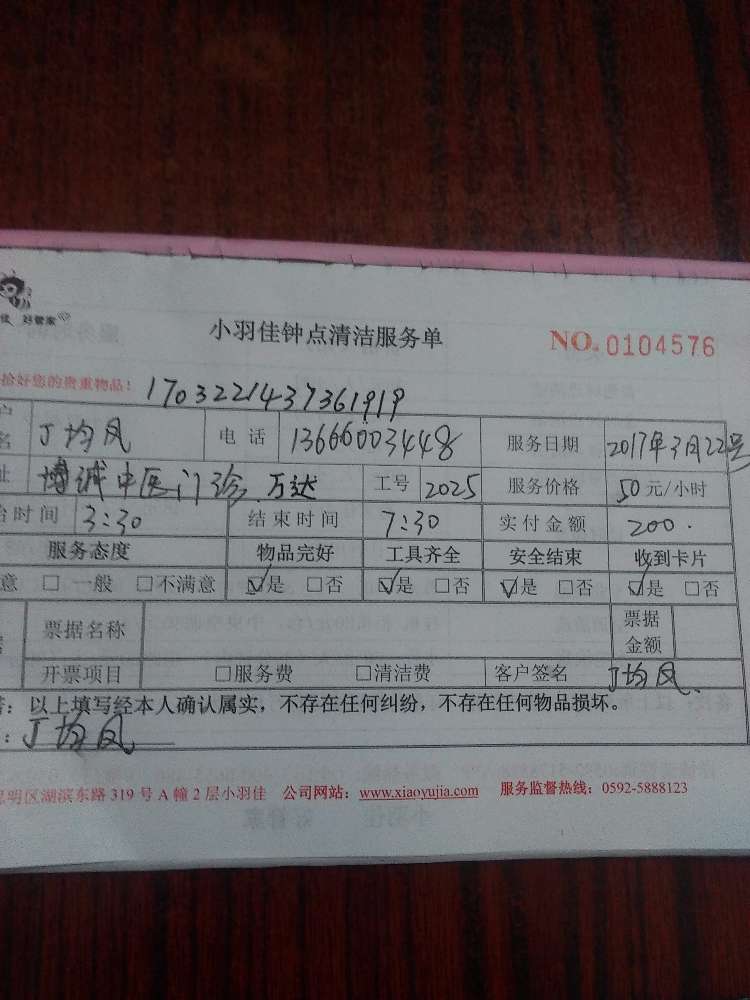 佳 好管家
小羽佳钟点清洁服务单 NO. 0104576
拾好您的贵重物品! 1703221437361919
户名 丁均凤 电话 13666003448 服务日期 2017年3月22号
址 博诚中医门诊.万达 工号 2025 服务价格 50元/小时
始时间 3:30 结束时间 7:30 实付金额 200.
服务态度 物品完好 工具齐全 安全结束 收到卡片
意 □ 一般 □不满意 ☑是 □否 ☑是 □否 ☑是 □否 ☑是 □否
票据名称 票据金额
开票项目 □服务费 □清洁费 客户签名 丁均凤
：以上填写经本人确认属实，不存在任何纠纷，不存在任何物品损坏。
：丁均凤
明区湖滨东路 319 号 A 幢 2 层小羽佳 公司网站：www.xiaoyujia.com 服务监督热线：0592-5888123